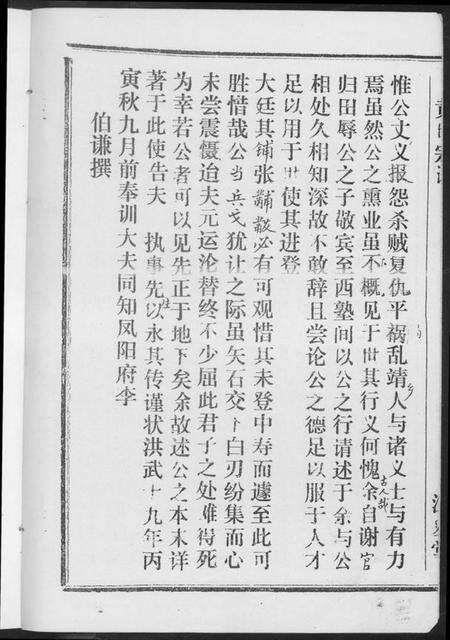 惟公丈义报怨杀贼复仇平祸乱靖乡人与诸义士与有力
焉虽然公之熏业虽不概见于世其行义何愧古人哉余自谢官
归田辱公之子敬宾至西塾间以公之行请述于余与公
相处久相知深故不敢辞且尝论公之德足以服于人才
足以用于世使其进登
大廷其铺张黼黻必有可观惜其未登中寿而遽至此可
胜惜哉公当兵戈犹让之际虽矢石交下白刃纷集而心
未尝震慑迨夫元运沦替终不少屈此君子之处难得死
为幸若公者可以见先正于地下矣余故述公之本末详
著于此使告夫 执事先以永其传谨状洪武十九年丙
寅秋九月前奉训大夫同知凤阳府李
伯谦撰